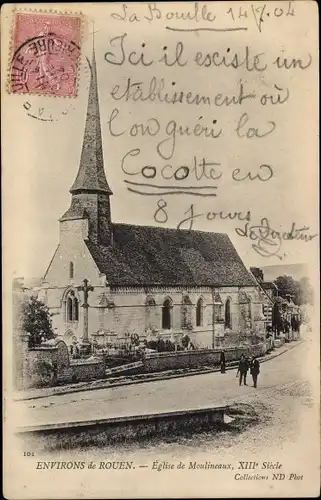 La Bouille 14/7.04
Ici il existe un
etablissement où
l'on guéri la
Cocotte en
8 jours
Le Directeur
101
ENVIRONS de ROUEN. — Église de Moulineaux, XIIIe Siècle
Collections ND Phot